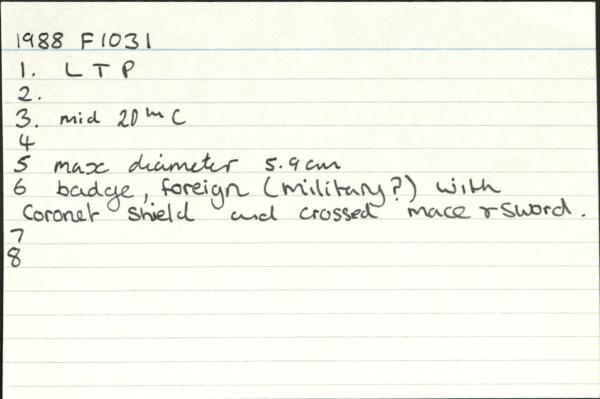 1988 F1031
1. L T P
2.
3. mid 20th C
4
5 max diameter 5.9cm
6 badge, foreign (military?) with
Coronet shield and crossed mace & sword.
7
8